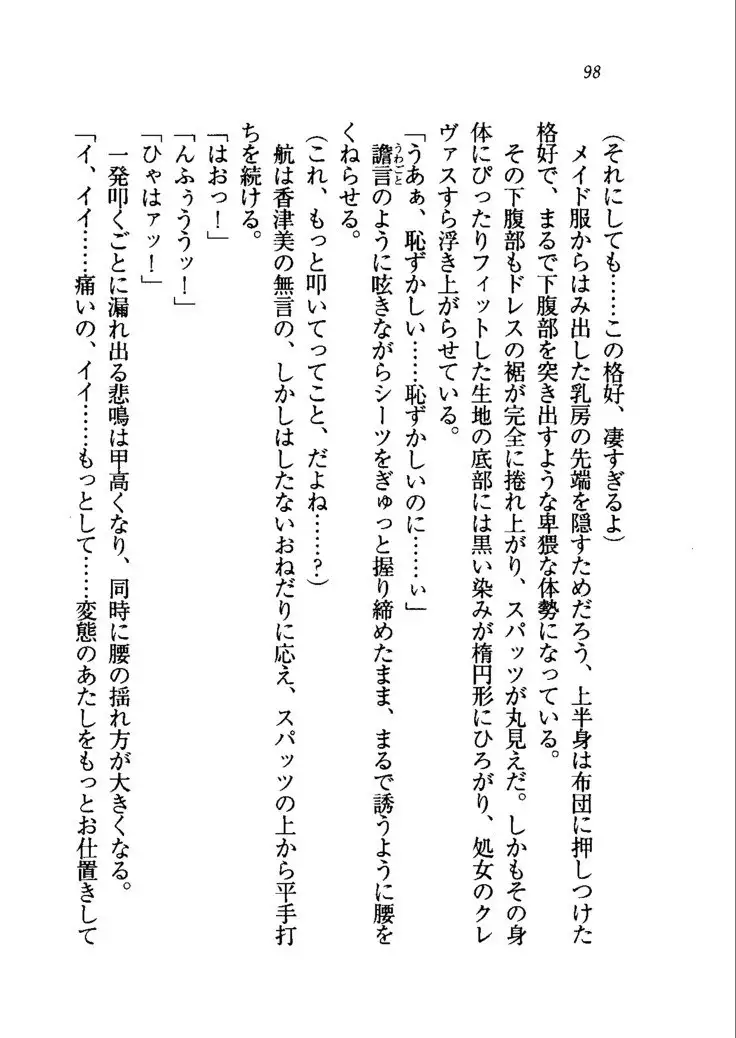 98
(それにしても……この格好、凄すぎるよ)
メイド服からはみ出した乳房の先端を隠すためだろう、上半身は布団に押しつけた
格好で、まるで下腹部を突き出すような卑猥な体勢になっている。
その下腹部もドレスの裾が完全に捲れ上がり、スパッツが丸見えだ。しかもその身
体にぴったりフィットした生地の底部には黒い染みが楕円形にひろがり、処女のクレ
ヴァスすら浮き上がらせている。
「うあぁ、恥ずかしい……恥ずかしいのに……ぃ」
譫言のように呟きながらシーツをぎゅっと握り締めたまま、まるで誘うように腰を
くねらせる。
(これ、もっと叩いてってこと、だよね……?)
航は香津美の無言の、しかしはしたないおねだりに応え、スパッツの上から平手打
ちを続ける。
「はおっ!」
「んふぅううッ!」
「ひゃはァッ!」
一発叩くごとに漏れ出る悲鳴は甲高くなり、同時に腰の揺れ方が大きくなる。
「イ、イイ……痛いの、イイ……もっとして……変態のあたしをもっとお仕置きして